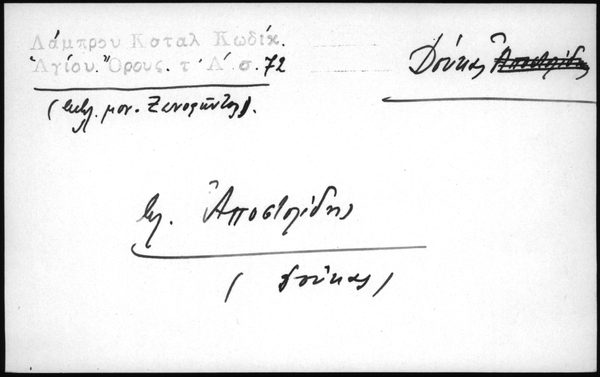 Λάμπρου Καταλ Κωδίκ.
Ἁγίου Ὄρους. τ. Α΄. σ. 72
Δούκας Ἀποστολίδης
μον. Ξενοφῶντος).
Ἀποστολίδης
(Δούκας)